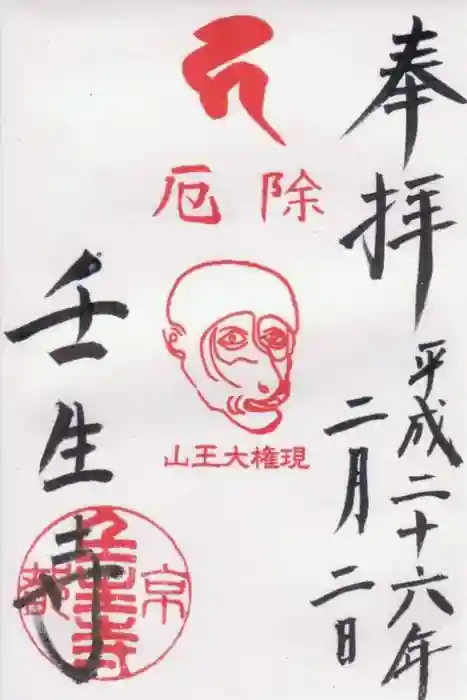 奉拝
平成二十六年
二月二日
厄除
山王大権現
壬生寺
京都
壬生寺